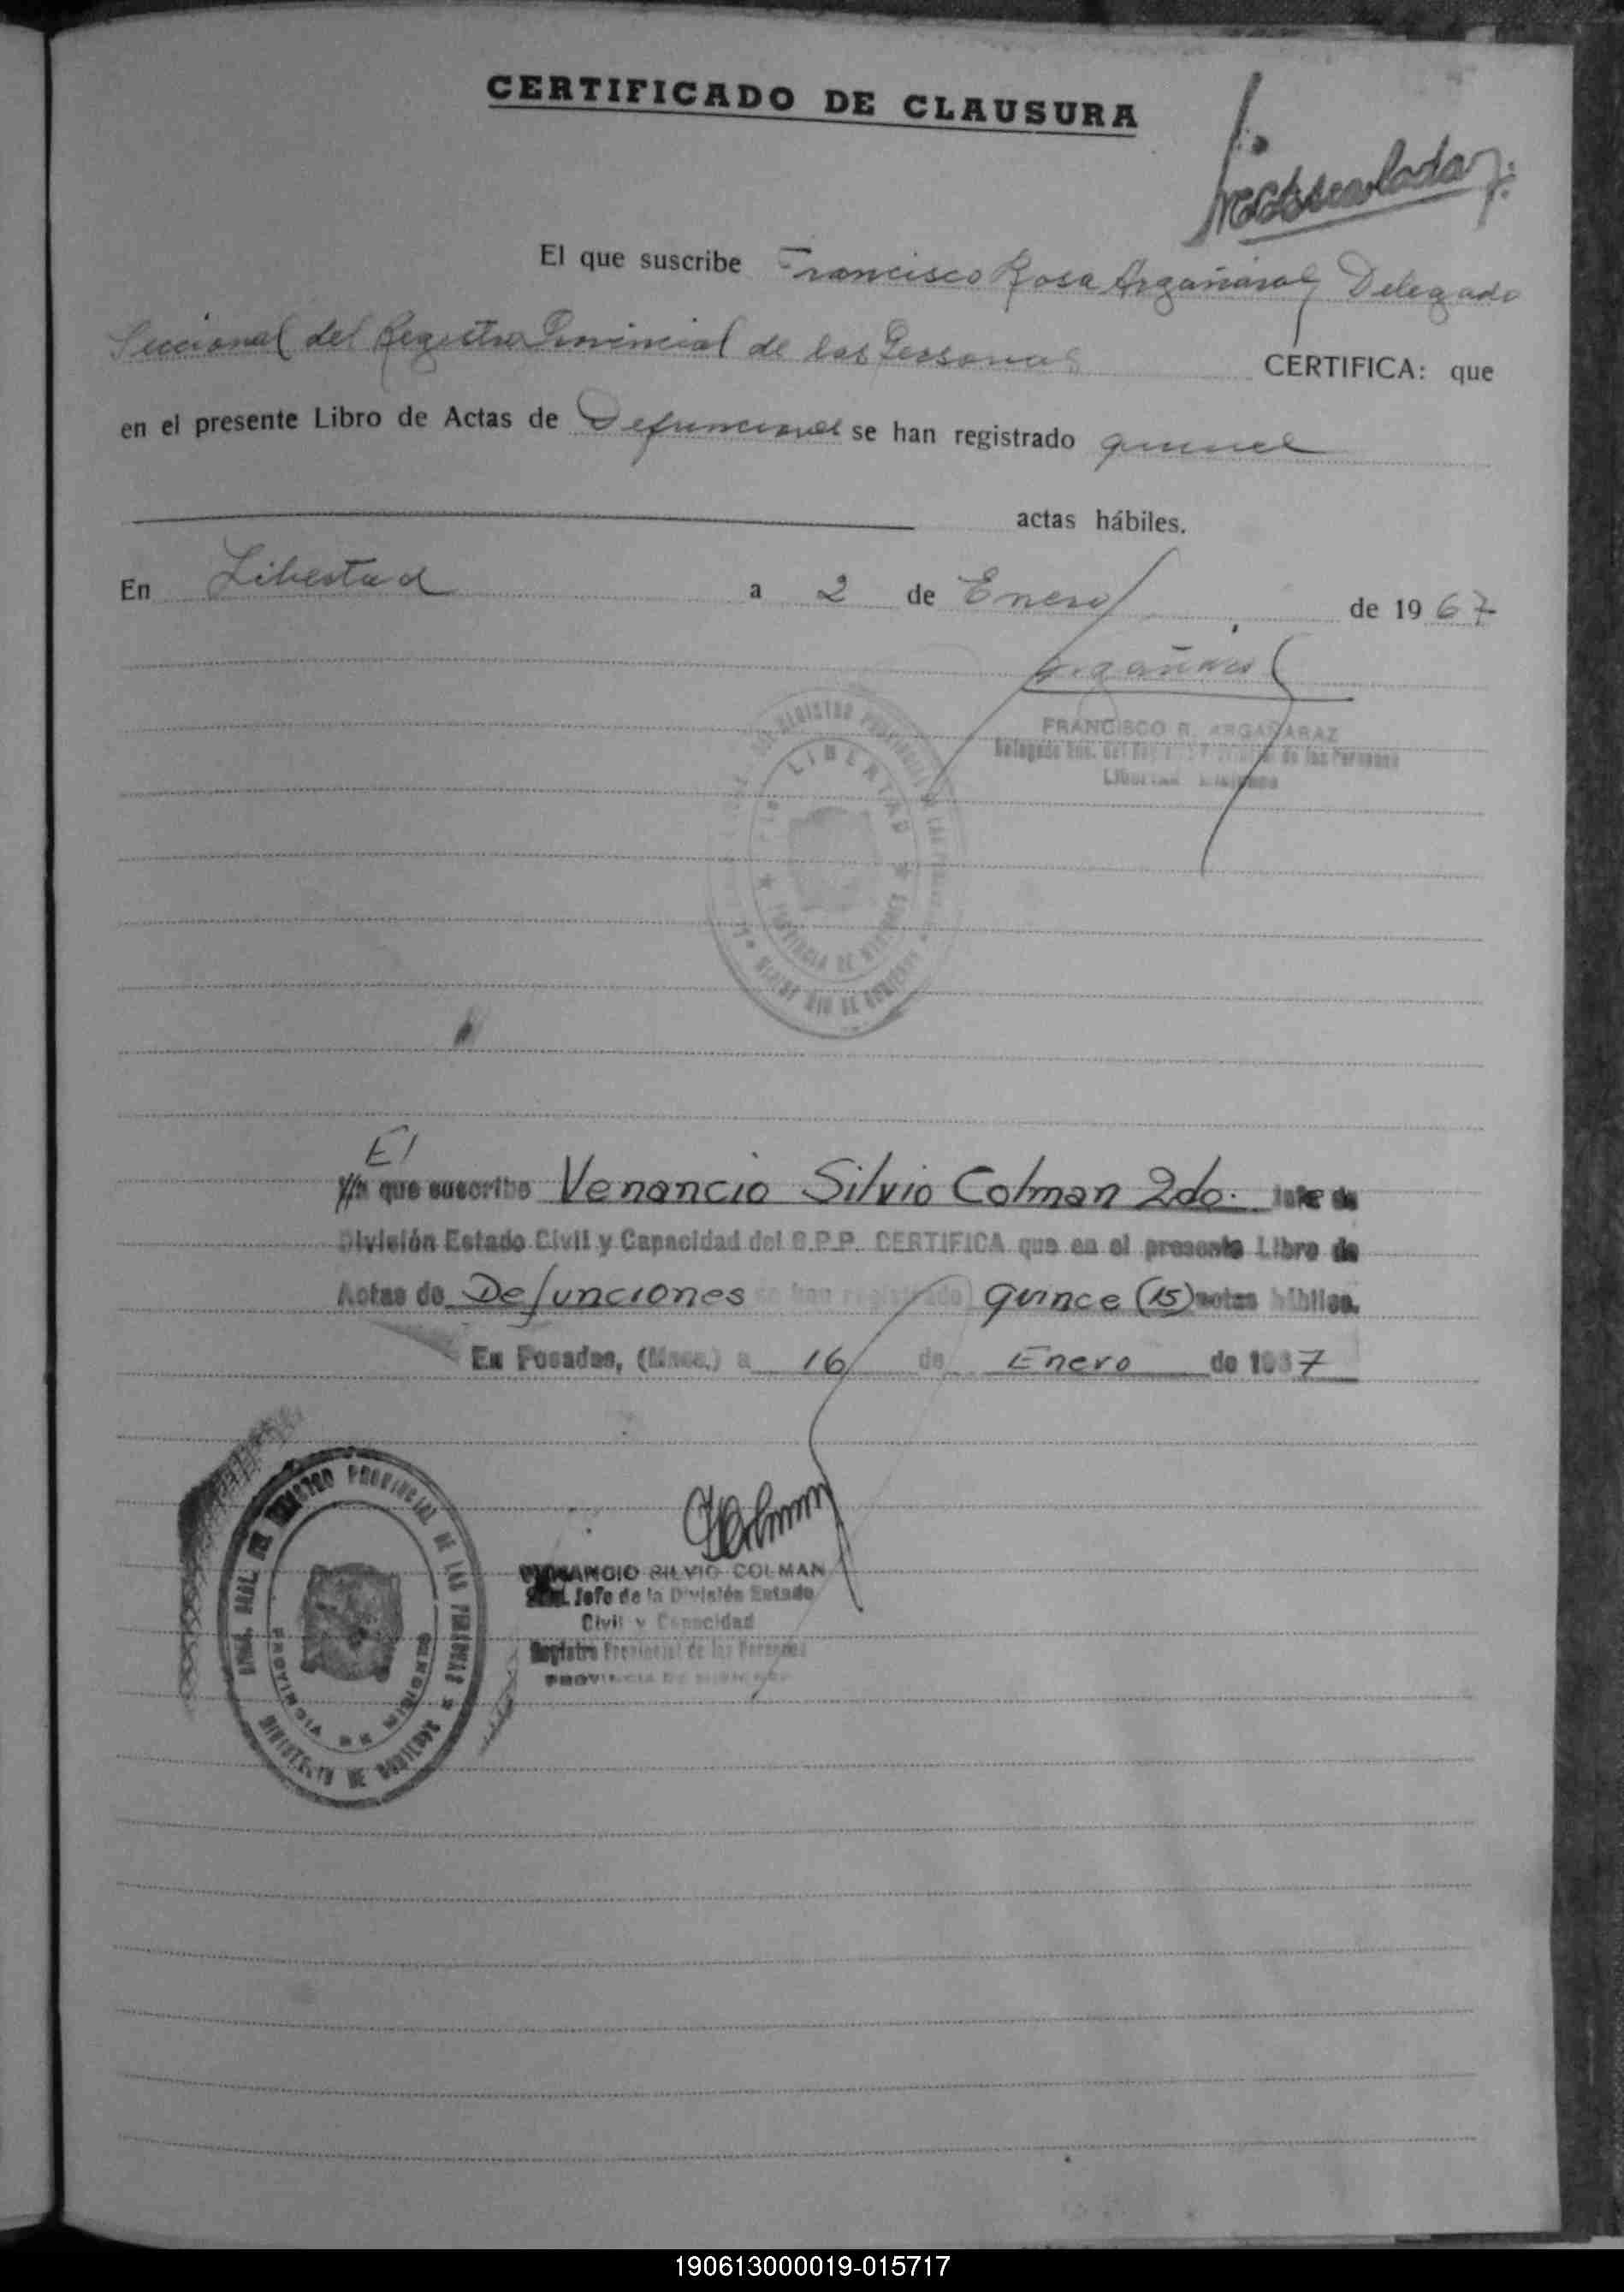 CERTIFICADO DE CLAUSURA
El que suscribe Francisco Rosa Argañaraz Delegado
Seccional del Registro Provincial de las Personas CERTIFICA: que
en el presente Libro de Actas de Defunciones se han registrado quince
actas hábiles.
En Libertad a 2 de Enero de 1967
Argañaraz
FRANCISCO R. ARGAÑARAZ
de las Personas
LIBERTAD
PROVINCIA DE MISIONES
El
que suscribe Venancio Silvio Colman 2do. Jefe de
División Estado Civil y Capacidad del R.P.P. CERTIFICA que en el presente Libro de
Actas de Defunciones se han registrado quince (15) actas hábiles.
En Posadas, (Mnes.) a 16 de Enero de 1967
VENANCIO SILVIO COLMAN
Jefe de la División Estado
Civil y Capacidad
Registro Provincial de las Personas
PROVINCIA DE MISIONES
REGISTRO PROVINCIAL DE LAS PERSONAS
PROVINCIA DE MISIONES
190613000019-015717